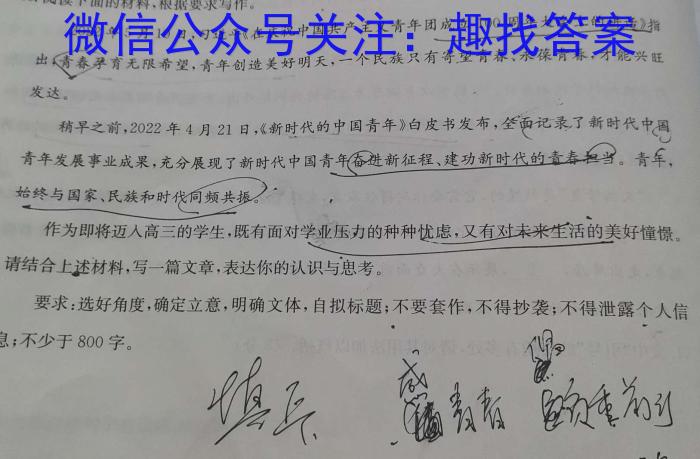 阅读下面的材料,根据要求写作。
微信公众号关注：趣找答案
出,青春孕育无限希望,青年创造美好明天,一个民族只有寄望青春、永葆青春,才能兴旺
发达。
稍早之前,2022年4月21日,《新时代的中国青年》白皮书发布,全面记录了新时代中国
青年发展事业成果,充分展现了新时代中国青年奋进新征程、建功新时代的青春担当。青年,
始终与国家、民族和时代同频共振。
作为即将迈入高三的学生,既有面对学业压力的种种忧虑,又有对未来生活的美好憧憬。
请结合上述材料,写一篇文章,表达你的认识与思考。
要求:选好角度,确定立意,明确文体,自拟标题;不要套作,不得抄袭;不得泄露个人信
息;不少于800字。
青春 负重前行